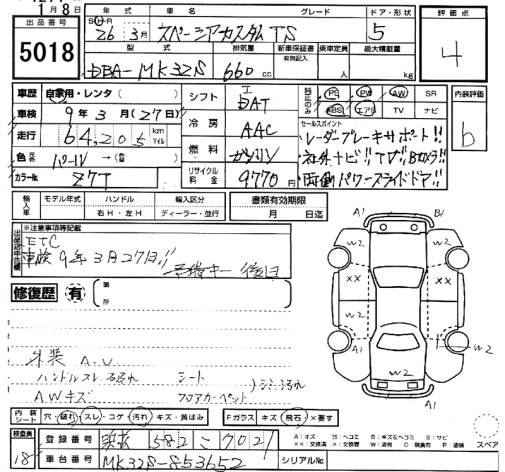 1月8日
出品番号
5018
年式 車名 グレード ドア・形状 評価点
S H・R
26年 3月 スペーシアカスタム TS 5 4
型式 排気量 新車保証書 有無記入 乗車定員 最大積載量
DBA-MK32S 660cc 人 kg
車歴 自家用・レンタ( )
車検 9年 3月(27日)
走行 64,205 km マイル
色 パール→( )
カラーNo. Z7T
シフト DAT
冷房 AAC
燃料 ガソリン
リサイクル料金 9770円
PS PW AW SR
ABS エアB TV ナビ
内装評価
b
セールスポイント
レーダーブレーキサポート!!
社外ナビ!! TV!! Bカメラ!!
両側パワースライドドア!!
輸入車 モデル年式 ハンドル 輸入区分
年 右H・左H ディーラー・並行
書類有効期限
月 日迄
※注意事項等記載
ETC
車検9年3月27日!!
修復歴 有 箇所
外装 A.U
ハンドルスレ シート
A.Wキズ フロアカーペット
内装シート 穴・破れ・スレ・コゲ・汚れ・キズ・黄ばみ
Fガラス キズ・飛石・×要す
検査員
181
登録番号 582 こ 7021
車台番号 MK32S-853652
シリアルNo.
A1 B1
W2 W2
×× ××
W2 W2
W2 W2
A1 A1
A:キズ B:キズ&ヘコミ S:サビ
××:交換済 ×:要交換 W:波判 C:腐食有 P:塗装
スペア